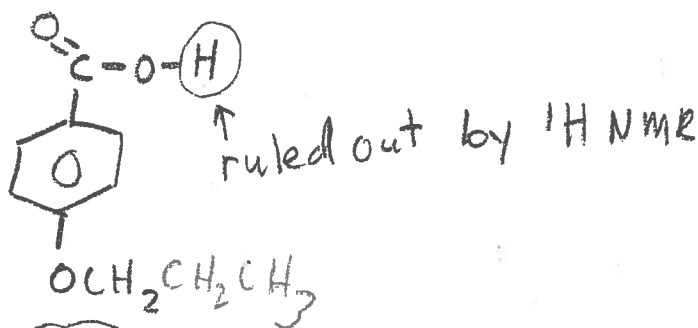 O
C-O-H
ruled out by ¹H NMR
O
OCH₂CH₂CH₃